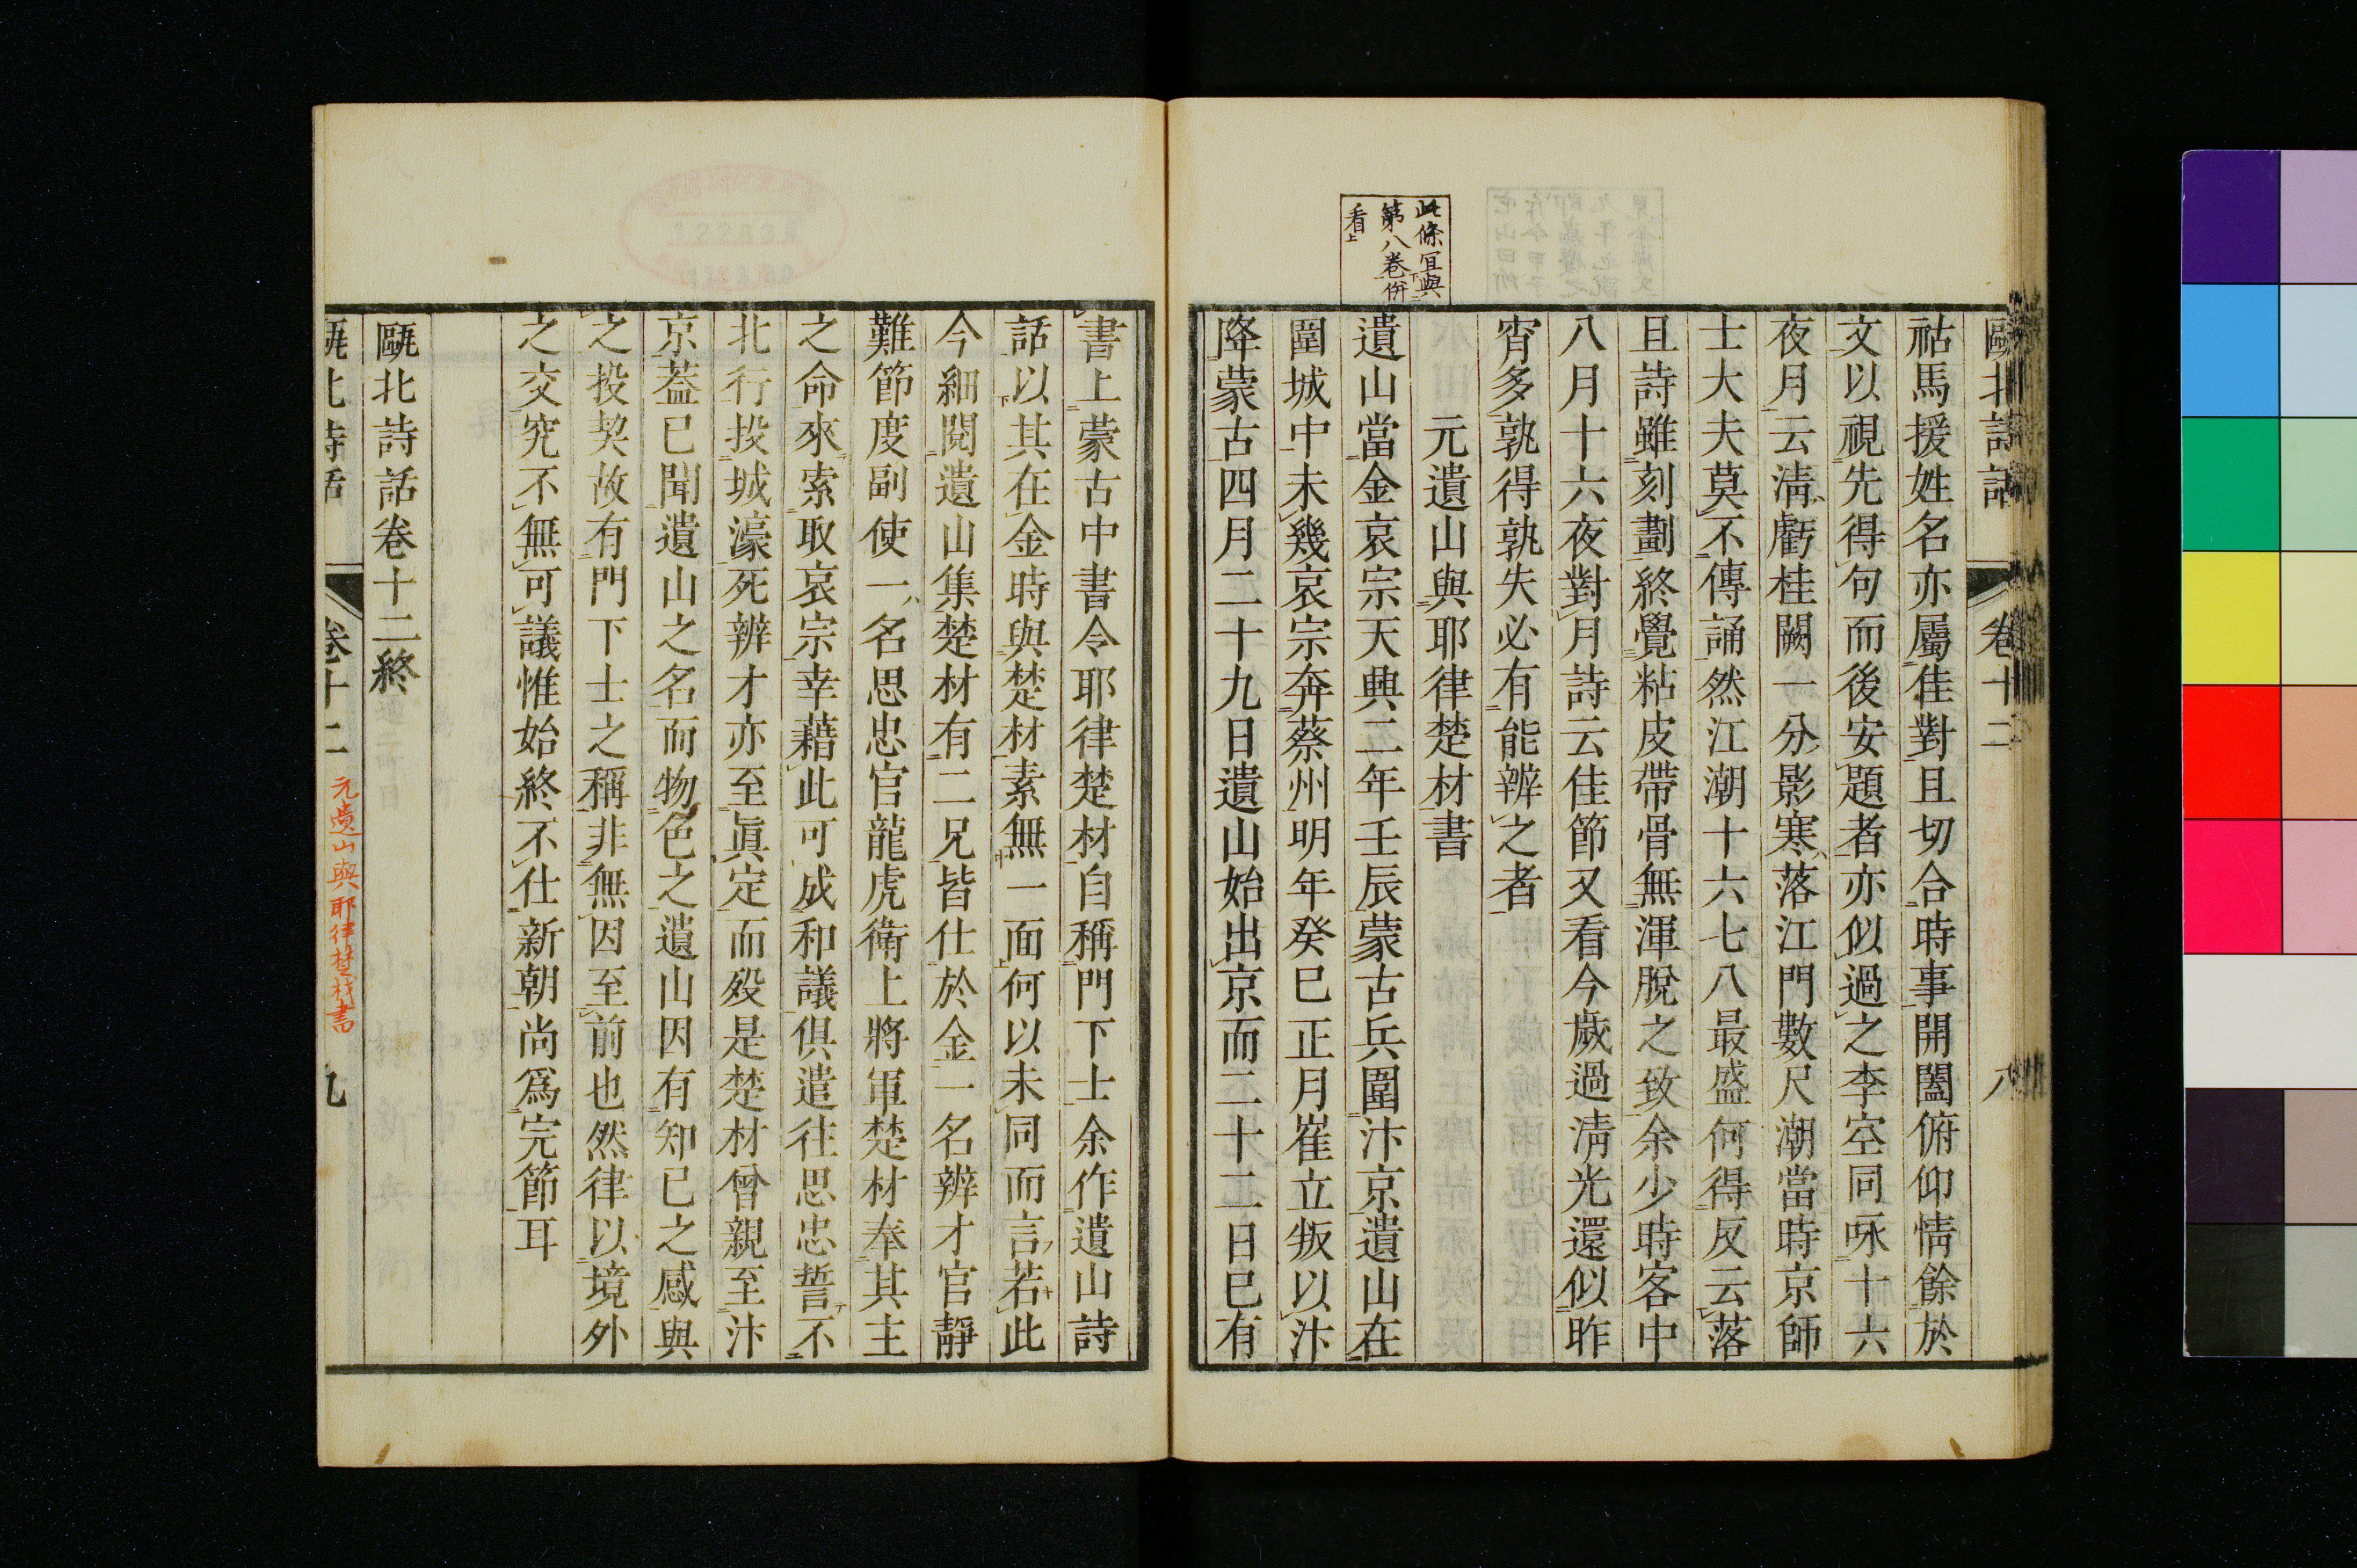 甌北詩話 卷十二 八
祜馬援姓名亦屬佳對且切合時事開闔俯仰情餘於
文以視先得句而後安題者亦似過之李空同咏十六
夜月云淸虧桂闕一分影寒落江門數尺潮當時京師
士大夫莫不傳誦然江潮十六七八最盛何得反云落
且詩雖刻劃終覺粘皮帶骨無渾脫之致余少時客中
八月十六夜對月詩云佳節又看今歲過淸光還似昨
宵多孰得孰失必有能辨之者
此條宜與
第八卷併
看
元遺山與耶律楚材書
遺山當金哀宗天興二年壬辰蒙古兵圍汴京遺山在
圍城中未幾哀宗奔蔡州明年癸巳正月崔立叛以汴
降蒙古四月二十九日遺山始出京而二十二日已有
書上蒙古中書令耶律楚材自稱門下士余作遺山詩
話以其在金時與楚材素無一面何以未同而言若此
今細閱遺山集楚材有二兄皆仕於金一名辨才官靜
難節度副使一名思忠官龍虎衛上將軍楚材奉其主
之命來索取哀宗幸藉此可成和議俱遣往思忠誓不
北行投城濠死辨才亦至眞定而歿是楚材曾親至汴
京葢已聞遺山之名而物色之遺山因有知已之感與
之投契故有門下士之稱非無因至前也然律以境外
之交究不無可議惟始終不仕新朝尚爲完節耳
甌北詩話卷十二終
甌北詩話 卷十二 元遺山與耶律楚材書 九